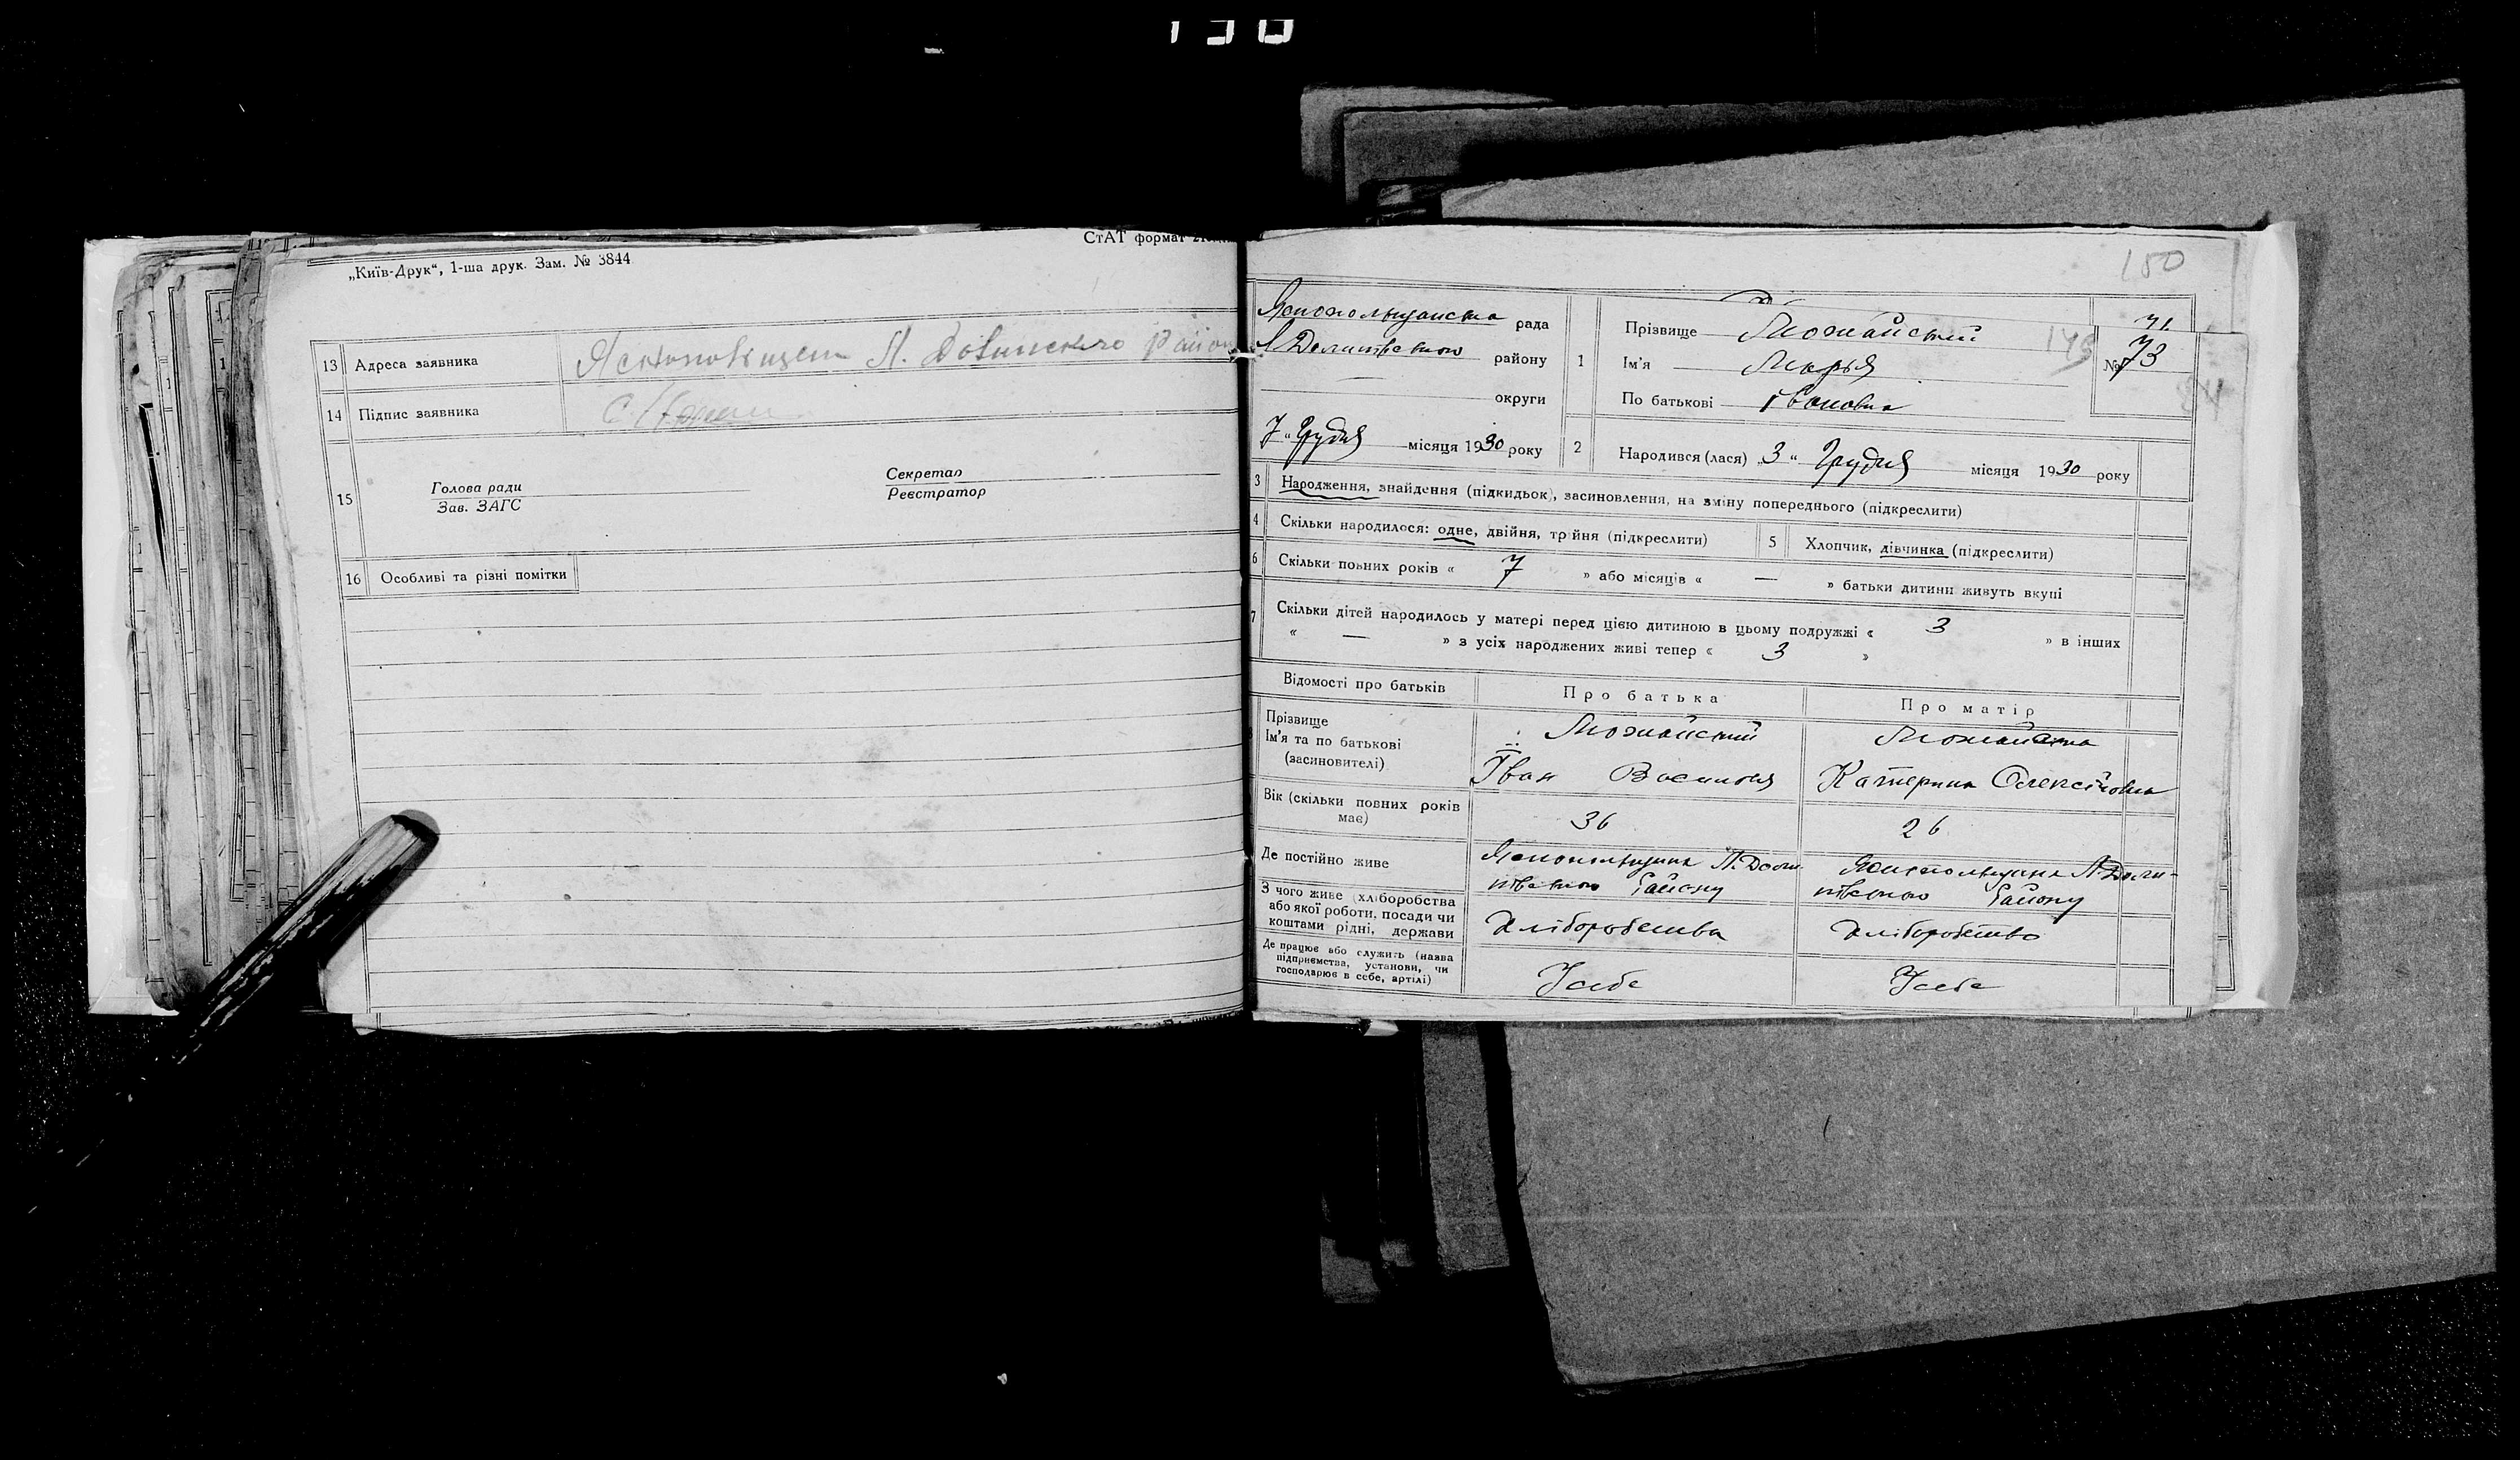 130
СтАТ формат
„Київ-Друк“, 1-ша друк. Зам. № 3844
13 Адреса заявника
14 Підпис заявника
15 Голова ради
Зав. ЗАГС
Секретар
Реєстратор
16 Особливі та різні помітки
150
рада
району
округи
7 „ Грудня місяця 1930 року
1 Прізвище Можайский
Ім'я Марья
По батькові Івановна
71
№ 73
2 Народився (лася) „3 “ Грудня місяця 1930 року
3 Народження, знайдення (підкидьок), засиновлення, на зміну попереднього (підкреслити)
4 Скільки народилося: одне, двійня, трійня (підкреслити) 5 Хлопчик, дівчинка (підкреслити)
6 Скільки повних років « 7 » або місяців « — » батьки дитини живуть вкупі
7 Скільки дітей народилось у матері перед цією дитиною в цьому подружжі « 3 » в інших
« — » з усіх народжених живі тепер « 3 »
Відомості про батьків Про батька Про матір
Прізвище
Ім'я та по батькові
(засиновителі)
Можайский
Іван
Можайска
Катерина Олексіївна
Вік (скільки повних років
має)
36
26
Де постійно живе
району
району
З чого живе (хліборобства
або якої роботи, посади чи
коштами рідні, держави
Хліборобства
Хліборобство
Де працює або служить (назва
підприємства, установи, чи
господарює в себе, артілі)
У себе
У себе